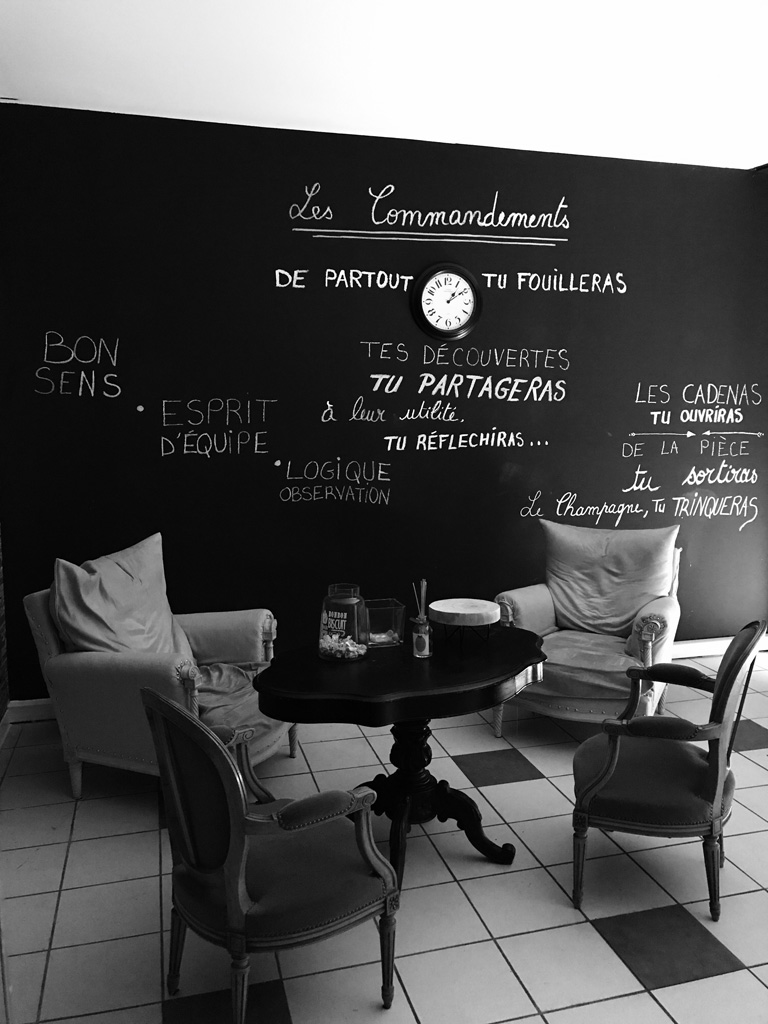 Les Commandements
DE PARTOUT TU FOUILLERAS
TES DÉCOUVERTES
TU PARTAGERAS
à leur utilité,
TU RÉFLECHIRAS...
BON
SENS
• ESPRIT
D'ÉQUIPE
• LOGIQUE
OBSERVATION
LES CADENAS
TU OUVRIRAS
DE LA PIÈCE
tu sortiras
Le Champagne, TU TRINQUERAS
BONBON
BISCUIT